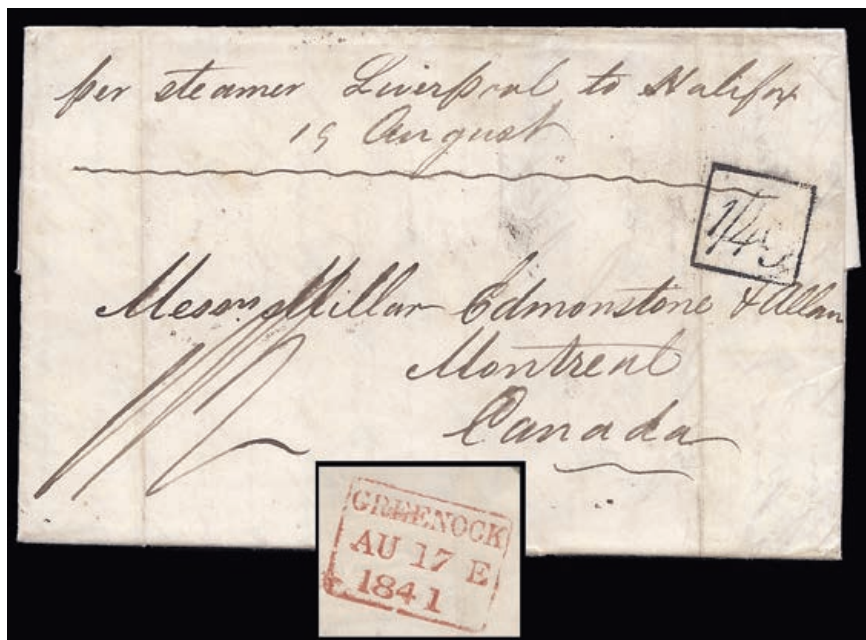 per steamer Liverpool to Halifax
19 August
1/4½
Messrs Millar Edmonstone & Allan
Montreal
Canada
1/2
GREENOCK
AU 17 E
1841